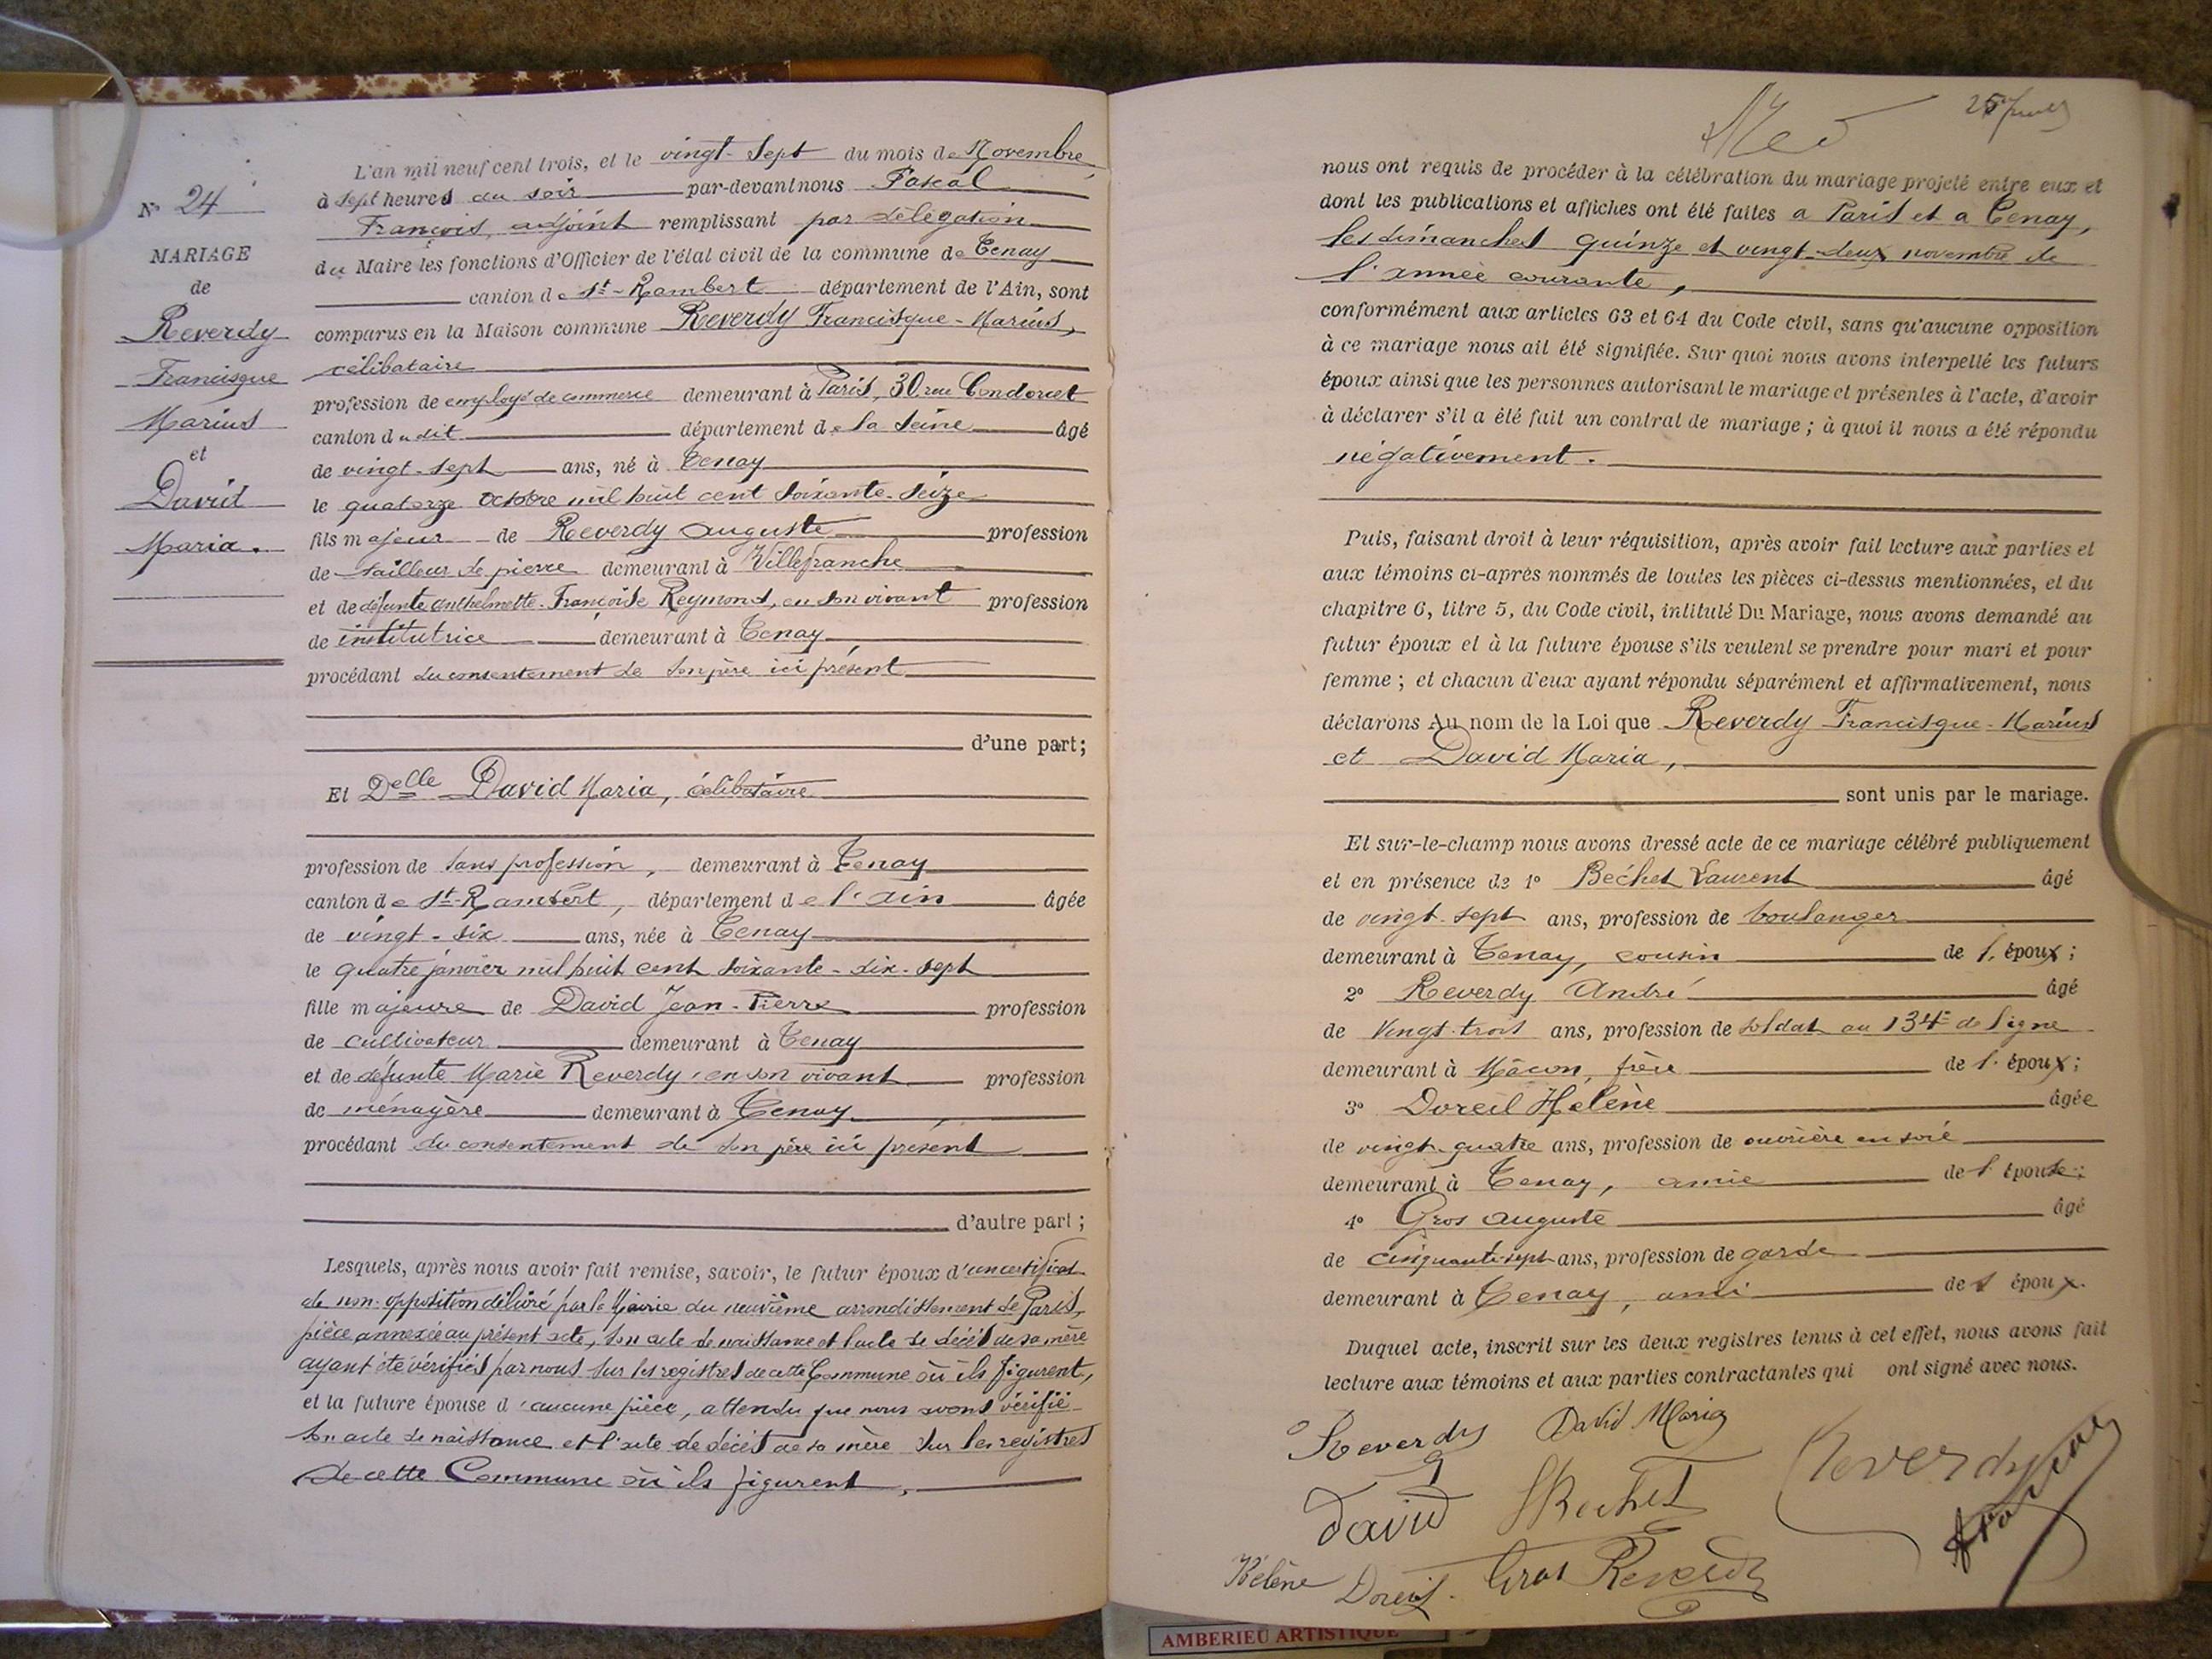 N° 24
MARIAGE
de
Reverdy
Francisque
Marius
et
David
Maria.
L'an mil neuf cent trois, et le vingt-sept du mois de Novembre
à sept heures du soir par-devant nous Pascal
François, adjoint remplissant par délégation
du Maire les fonctions d'Officier de l'état civil de la commune de Tenay
canton de St-Rambert département de l'Ain, sont
comparus en la Maison commune Reverdy Francisque-Marius,
célibataire
profession de employé de commerce demeurant à Paris, 30, rue Condorcet
canton dudit département de la Seine âgé
de vingt-sept ans, né à Tenay
le quatorze octobre mil huit cent soixante-seize
fils majeur de Reverdy Auguste profession
de tailleur de pierre demeurant à Villefranche
et de défunte Anthelmette-Françoise Reymond, en son vivant profession
de institutrice demeurant à Tenay,
procédant du consentement de son père ici présent
d'une part;
Et Delle David Maria, célibataire
profession de sans profession, demeurant à Tenay
canton de St-Rambert, département de l'Ain âgée
de vingt-six ans, née à Tenay
le quatre janvier mil huit cent soixante-dix-sept
fille majeure de David Jean-Pierre profession
de cultivateur demeurant à Tenay
et de défunte Marie Reverdy, en son vivant profession
de ménagère demeurant à Tenay,
procédant du consentement de son père ici présent
d'autre part;
Lesquels, après nous avoir fait remise, savoir, le futur époux d'un certificat
de non-opposition délivré par la Mairie du neuvième arrondissement de Paris,
pièce annexée au présent acte, son acte de naissance et l'acte de décès de sa mère
ayant été vérifiés par nous sur les registres de cette Commune où ils figurent,
et la future épouse d'aucune pièce, attendu que nous avons vérifié
son acte de naissance et l'acte de décès de sa mère sur les registres
de cette Commune où ils figurent,
nous ont requis de procéder à la célébration du mariage projeté entre eux et
dont les publications et affiches ont été faites a Paris et a Tenay,
les dimanches quinze et vingt-deux novembre de
l'année courante,
conformément aux articles 63 et 64 du Code civil, sans qu'aucune opposition
à ce mariage nous ait été signifiée. Sur quoi nous avons interpellé les futurs
époux ainsi que les personnes autorisant le mariage et présentes à l'acte, d'avoir
à déclarer s'il a été fait un contrat de mariage; à quoi il nous a été répondu
négativement.
Puis, faisant droit à leur réquisition, après avoir fait lecture aux parties et
aux témoins ci-après nommés de toutes les pièces ci-dessus mentionnées, et du
chapitre 6, titre 5, du Code civil, intitulé Du Mariage, nous avons demandé au
futur époux et à la future épouse s'ils veulent se prendre pour mari et pour
femme; et chacun d'eux ayant répondu séparément et affirmativement, nous
déclarons Au nom de la Loi que Reverdy Francisque-Marius
et David Maria,
sont unis par le mariage.
Et sur-le-champ nous avons dressé acte de ce mariage célébré publiquement
et en présence de 1° Béchet Laurent âgé
de vingt-sept ans, profession de boulanger
demeurant à Tenay, cousin de l'époux;
2° Reverdy André âgé
de vingt-trois ans, profession de soldat au 134e de ligne
demeurant à Mâcon, frère de l'époux;
3° Doreil Hélène âgée
de vingt-quatre ans, profession de ouvrière en soie
demeurant à Tenay, amie de l'épouse;
4° Gros Auguste âgé
de cinquante-sept ans, profession de garde
demeurant à Tenay, ami de l'époux.
Duquel acte, inscrit sur les deux registres tenus à cet effet, nous avons fait
lecture aux témoins et aux parties contractantes qui ont signé avec nous.
Reverdy David Maria
David Bechet Reverdy
Hélène Doreil. Gros Reverdy
AMBERIEU ARTISTIQUE